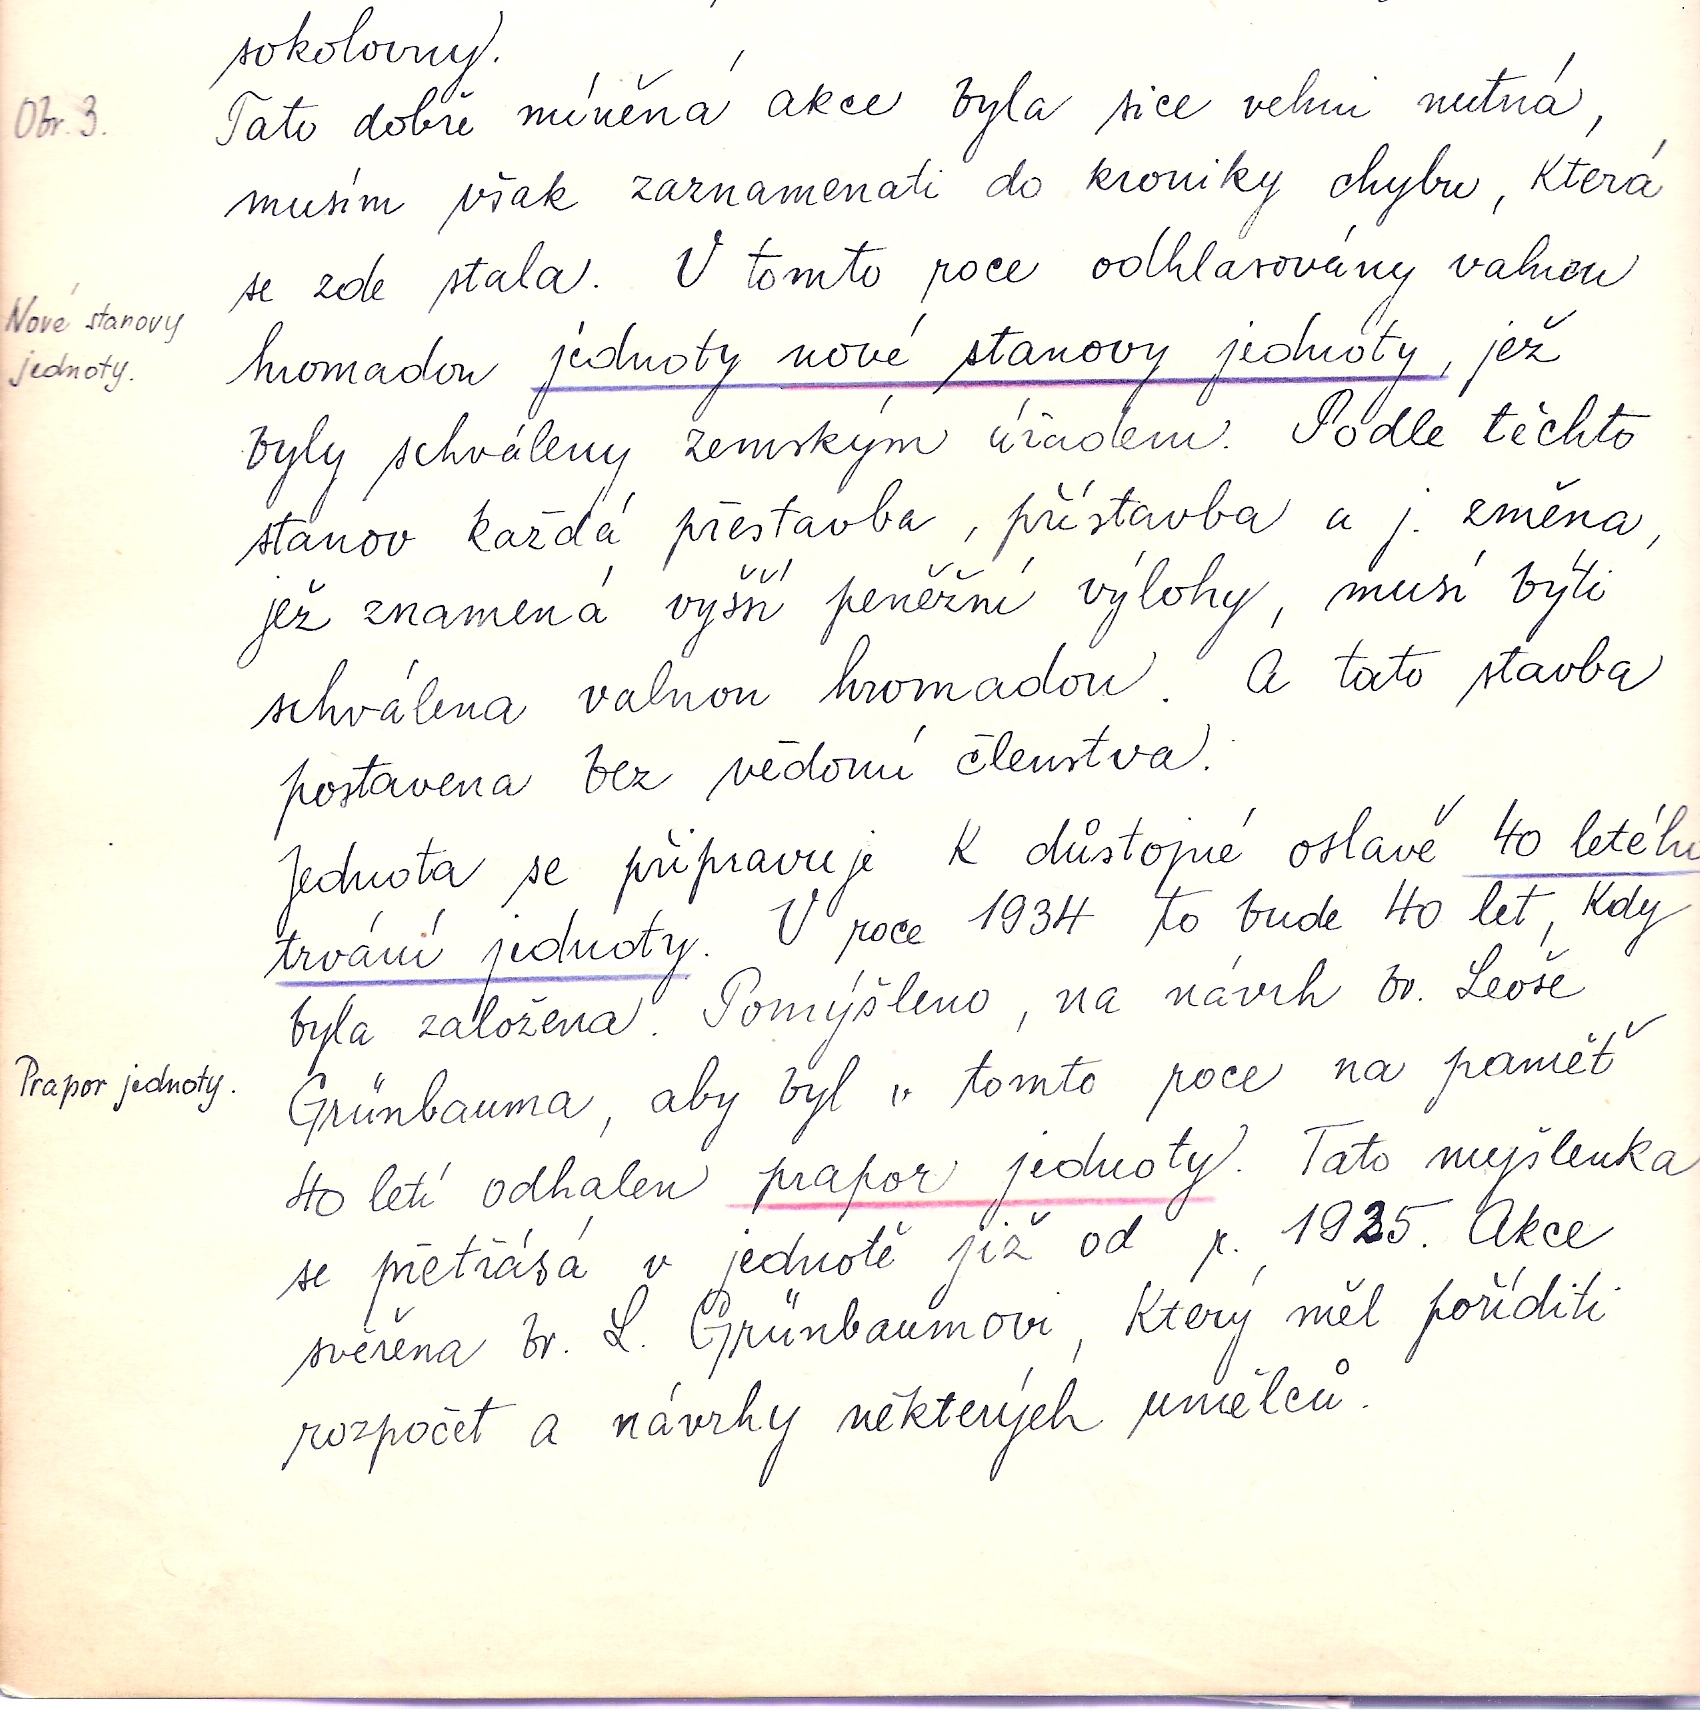 sokolovny.
Obr. 3.
Tato dobře míněná akce byla sice velmi nutná,
musím však zaznamenati do kroniky chybu, která
se zde stala. V tomto roce odhlasovány valnou
Nové stanovy
jednoty.
hromadou jednoty nové stanovy jednoty, jež
byly schváleny zemským úřadem. Podle těchto
stanov každá přestavba, přístavba a j. změna,
jež znamená vyšší peněžní výlohy, musí býti
schválena valnou hromadou. A tato stavba
postavena bez vědomí členstva.
Jednota se připravuje k důstojné oslavě 40 letého
trvání jednoty. V roce 1934 to bude 40 let, kdy
byla založena. Pomýšleno, na návrh br. Leoše
Prapor jednoty.
Grünbauma, aby byl v tomto roce na paměť
40 letí odhalen prapor jednoty. Tato myšlenka
se přetřásá v jednotě již od r. 1925. Akce
svěřena br. L. Grünbaumovi, který měl poříditi
rozpočet a návrhy některých umělců.